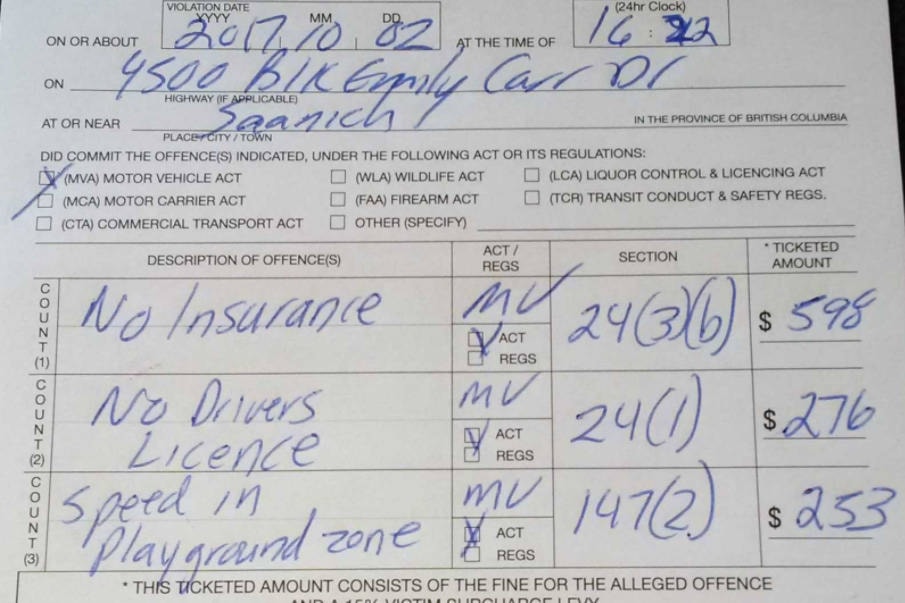 VIOLATION DATE (24hr Clock)
YYYY MM DD
ON OR ABOUT 2017 10 02 AT THE TIME OF 16 : 22
ON 4500 Blk Emily Carr Dr
HIGHWAY (IF APPLICABLE)
AT OR NEAR Saanich IN THE PROVINCE OF BRITISH COLUMBIA
PLACE/CITY/TOWN
DID COMMIT THE OFFENCE(S) INDICATED, UNDER THE FOLLOWING ACT OR ITS REGULATIONS:
(MVA) MOTOR VEHICLE ACT (WLA) WILDLIFE ACT (LCA) LIQUOR CONTROL & LICENCING ACT
(MCA) MOTOR CARRIER ACT (FAA) FIREARM ACT (TCR) TRANSIT CONDUCT & SAFETY REGS.
(CTA) COMMERCIAL TRANSPORT ACT OTHER (SPECIFY)
DESCRIPTION OF OFFENCE(S) ACT / REGS SECTION * TICKETED AMOUNT
COUNT (1) No Insurance MV 24(3)(b) $ 598
ACT
REGS
COUNT (2) No Drivers MV 24(1) $ 276
Licence ACT
REGS
COUNT (3) Speed in MV 147(2) $ 253
Playground zone ACT
REGS
* THIS TICKETED AMOUNT CONSISTS OF THE FINE FOR THE ALLEGED OFFENCE
AND A 15% VICTIM SURCHARGE LEVY